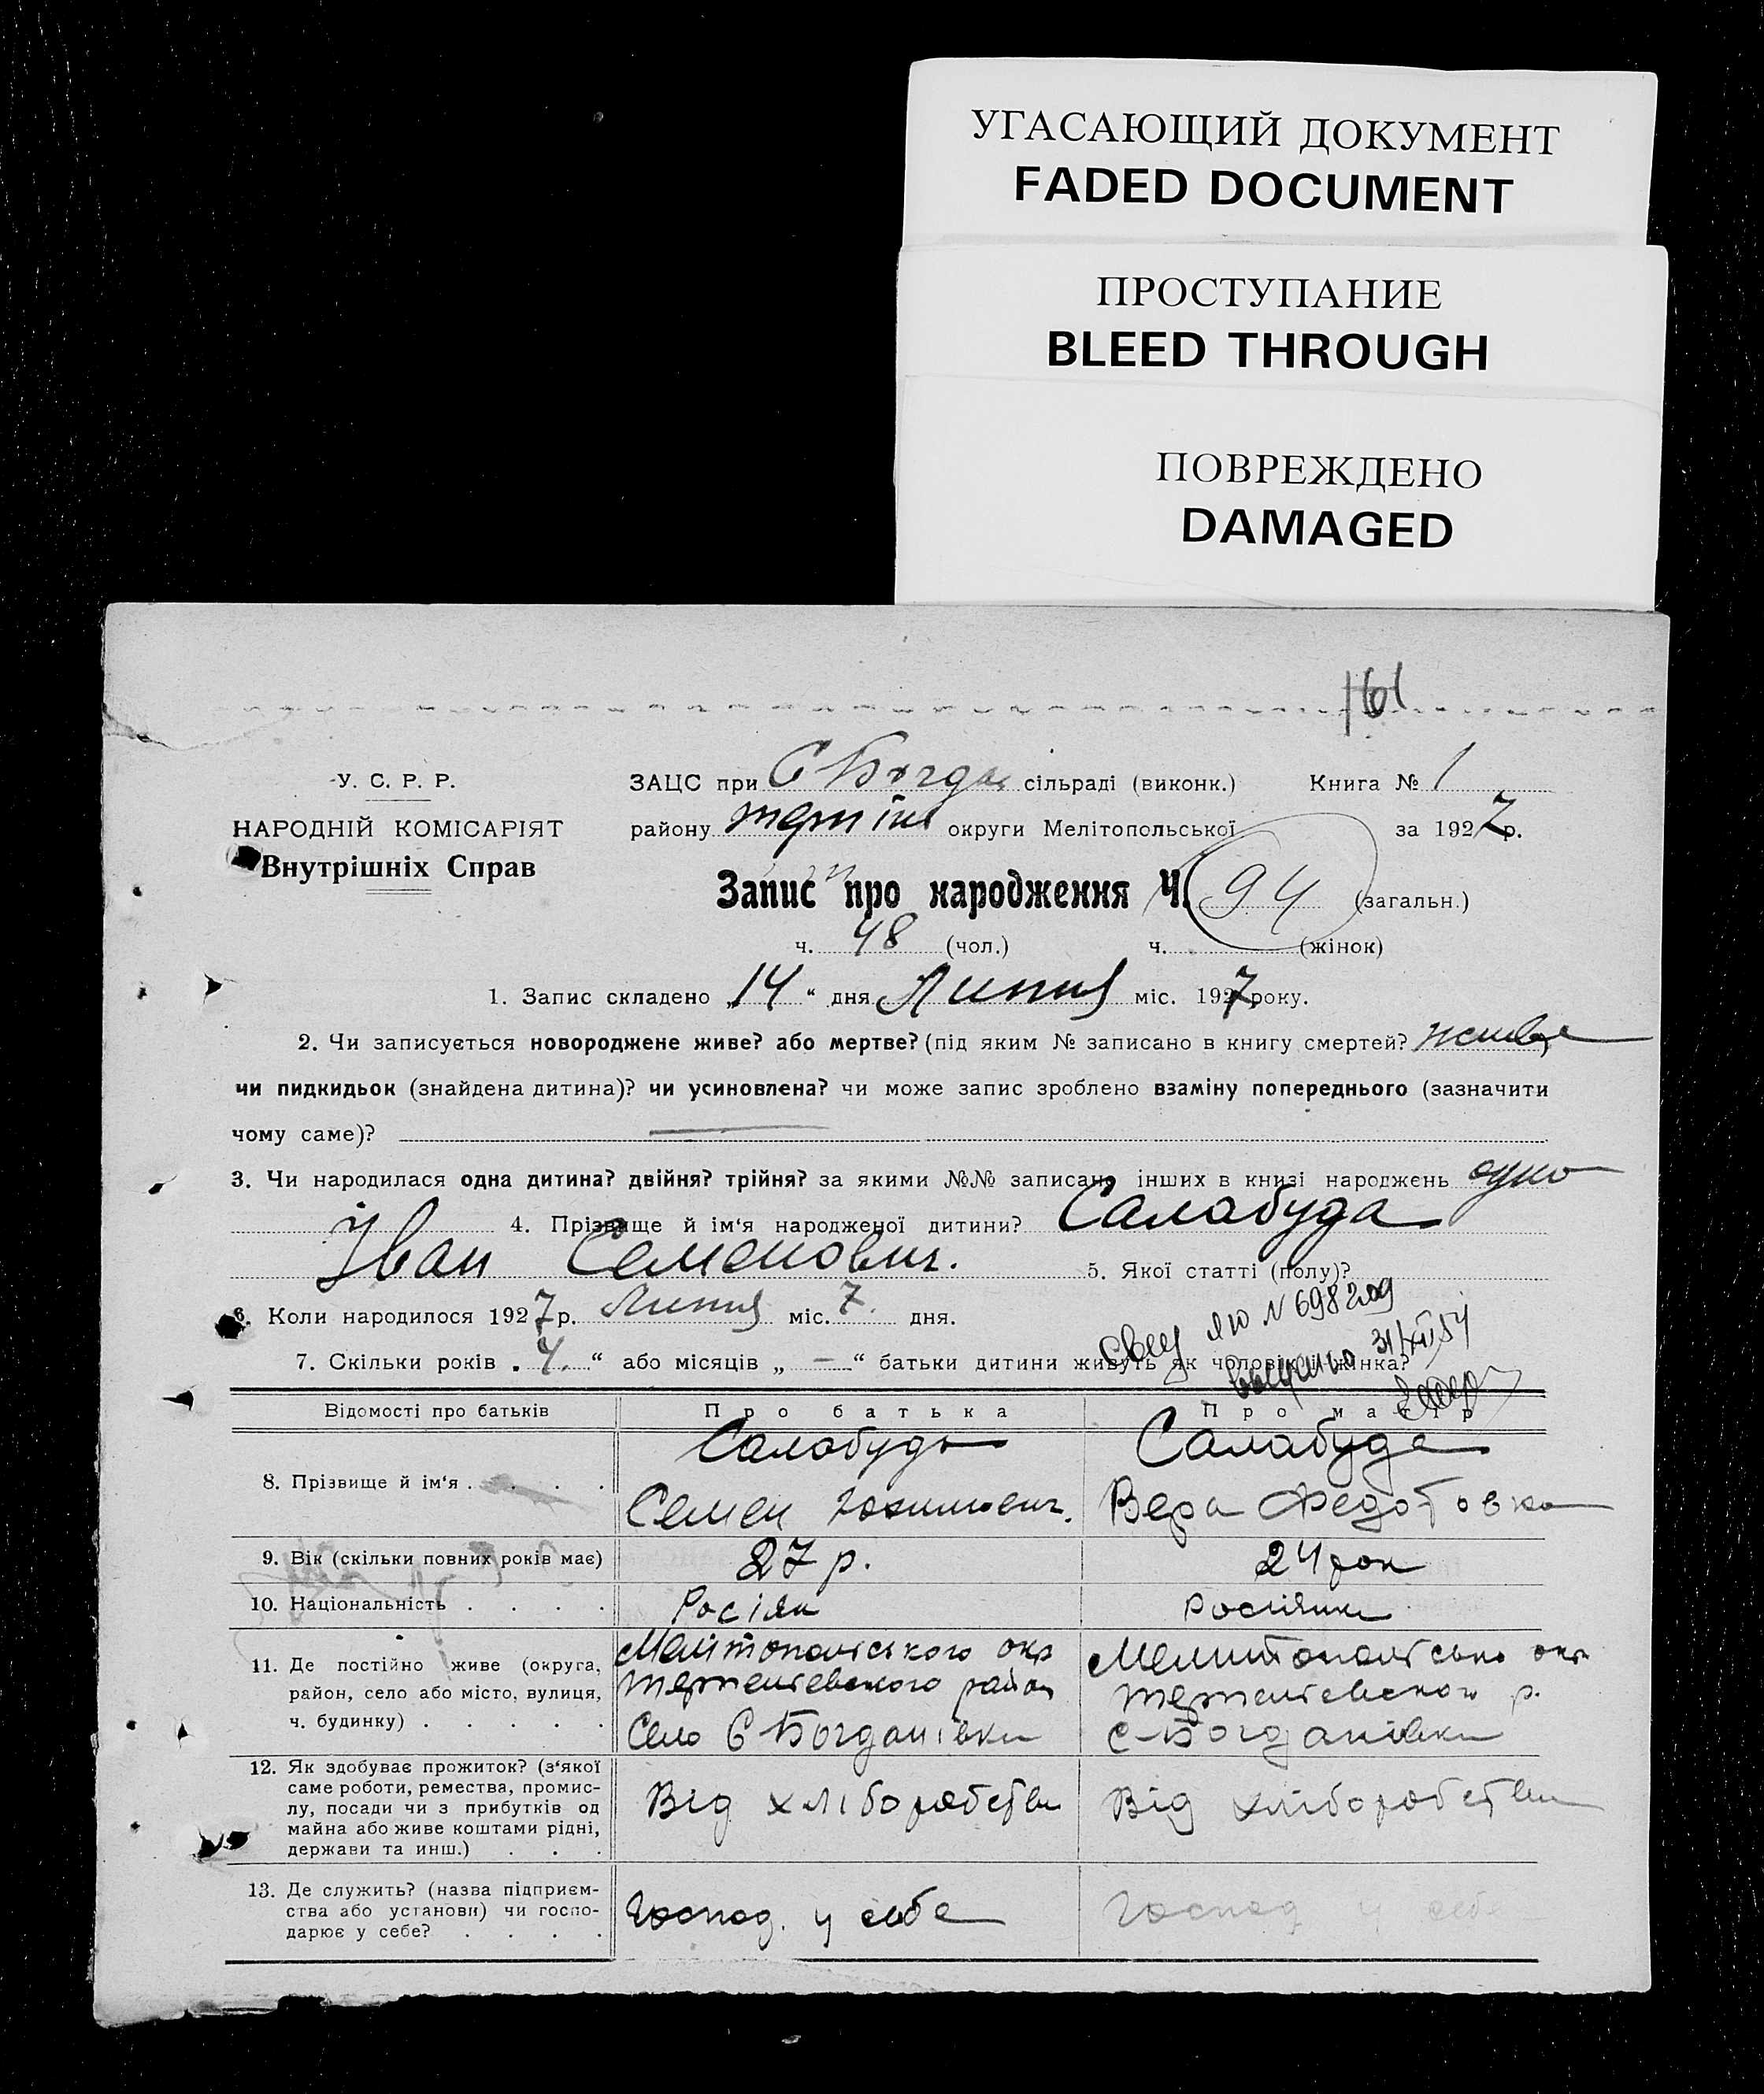 УГАСАЮЩИЙ ДОКУМЕНТ
FADED DOCUMENT
ПРОСТУПАНИЕ
BLEED THROUGH
ПОВРЕЖДЕНО
DAMAGED
161
У. С. Р. Р.
НАРОДНІЙ КОМІСАРІЯТ
Внутрішніх Справ
ЗАЦС при С Богда сільраді (виконк.) Книга № 1
району округи Мелітопольської за 1927 р.
Запис про народження Ч. 94 (загальн.)
ч. 48 (чол.) ч. (жінок)
1. Запис складено „14“ дня Липня міс. 1927 року.
2. Чи записується новороджене живе? або мертве? (під яким № записано в книгу смертей? живе
чи пидкидьок (знайдена дитина)? чи усиновлена? чи може запис зроблено взаміну попереднього (зазначити
чому саме)?
3. Чи народилася одна дитина? двійня? трійня? за якими №№ записано інших в книзі народжень одно
4. Прізвище й ім‘я народженої дитини? Салабуда
Іван Семенович. 5. Якої статті (полу)?
6. Коли народилося 1927 р. Липня міс. 7. дня.
7. Скільки років „4.“ або місяців „—“ батьки дитини живуть як чоловік і жінка?
N 698
31/XII 54
Відомості про батьків Про батька Про матір
8. Прізвище й ім‘я . . . . Салабуда Салабуда
Семен Вера Федотовна
9. Вік (скільки повних років має) 27 р. 24 рок
10. Національність . . . . Росіян Росіянка
11. Де постійно живе (округа, район, село або місто, вулиця, ч. будинку) . . . . .
Мелітопольського окр
район
Село С Богданівка
р.
С-Богданівка
12. Як здобуває прожиток? (з‘якої саме роботи, ремества, промислу, посади чи з прибутків од майна або живе коштами рідні, держави та инш.) . . .
Від хліборобства Від хліборобства
13. Де служить? (назва підприємства або установи) чи господарює у себе? . . . .
Господ. у себе Господ у себе